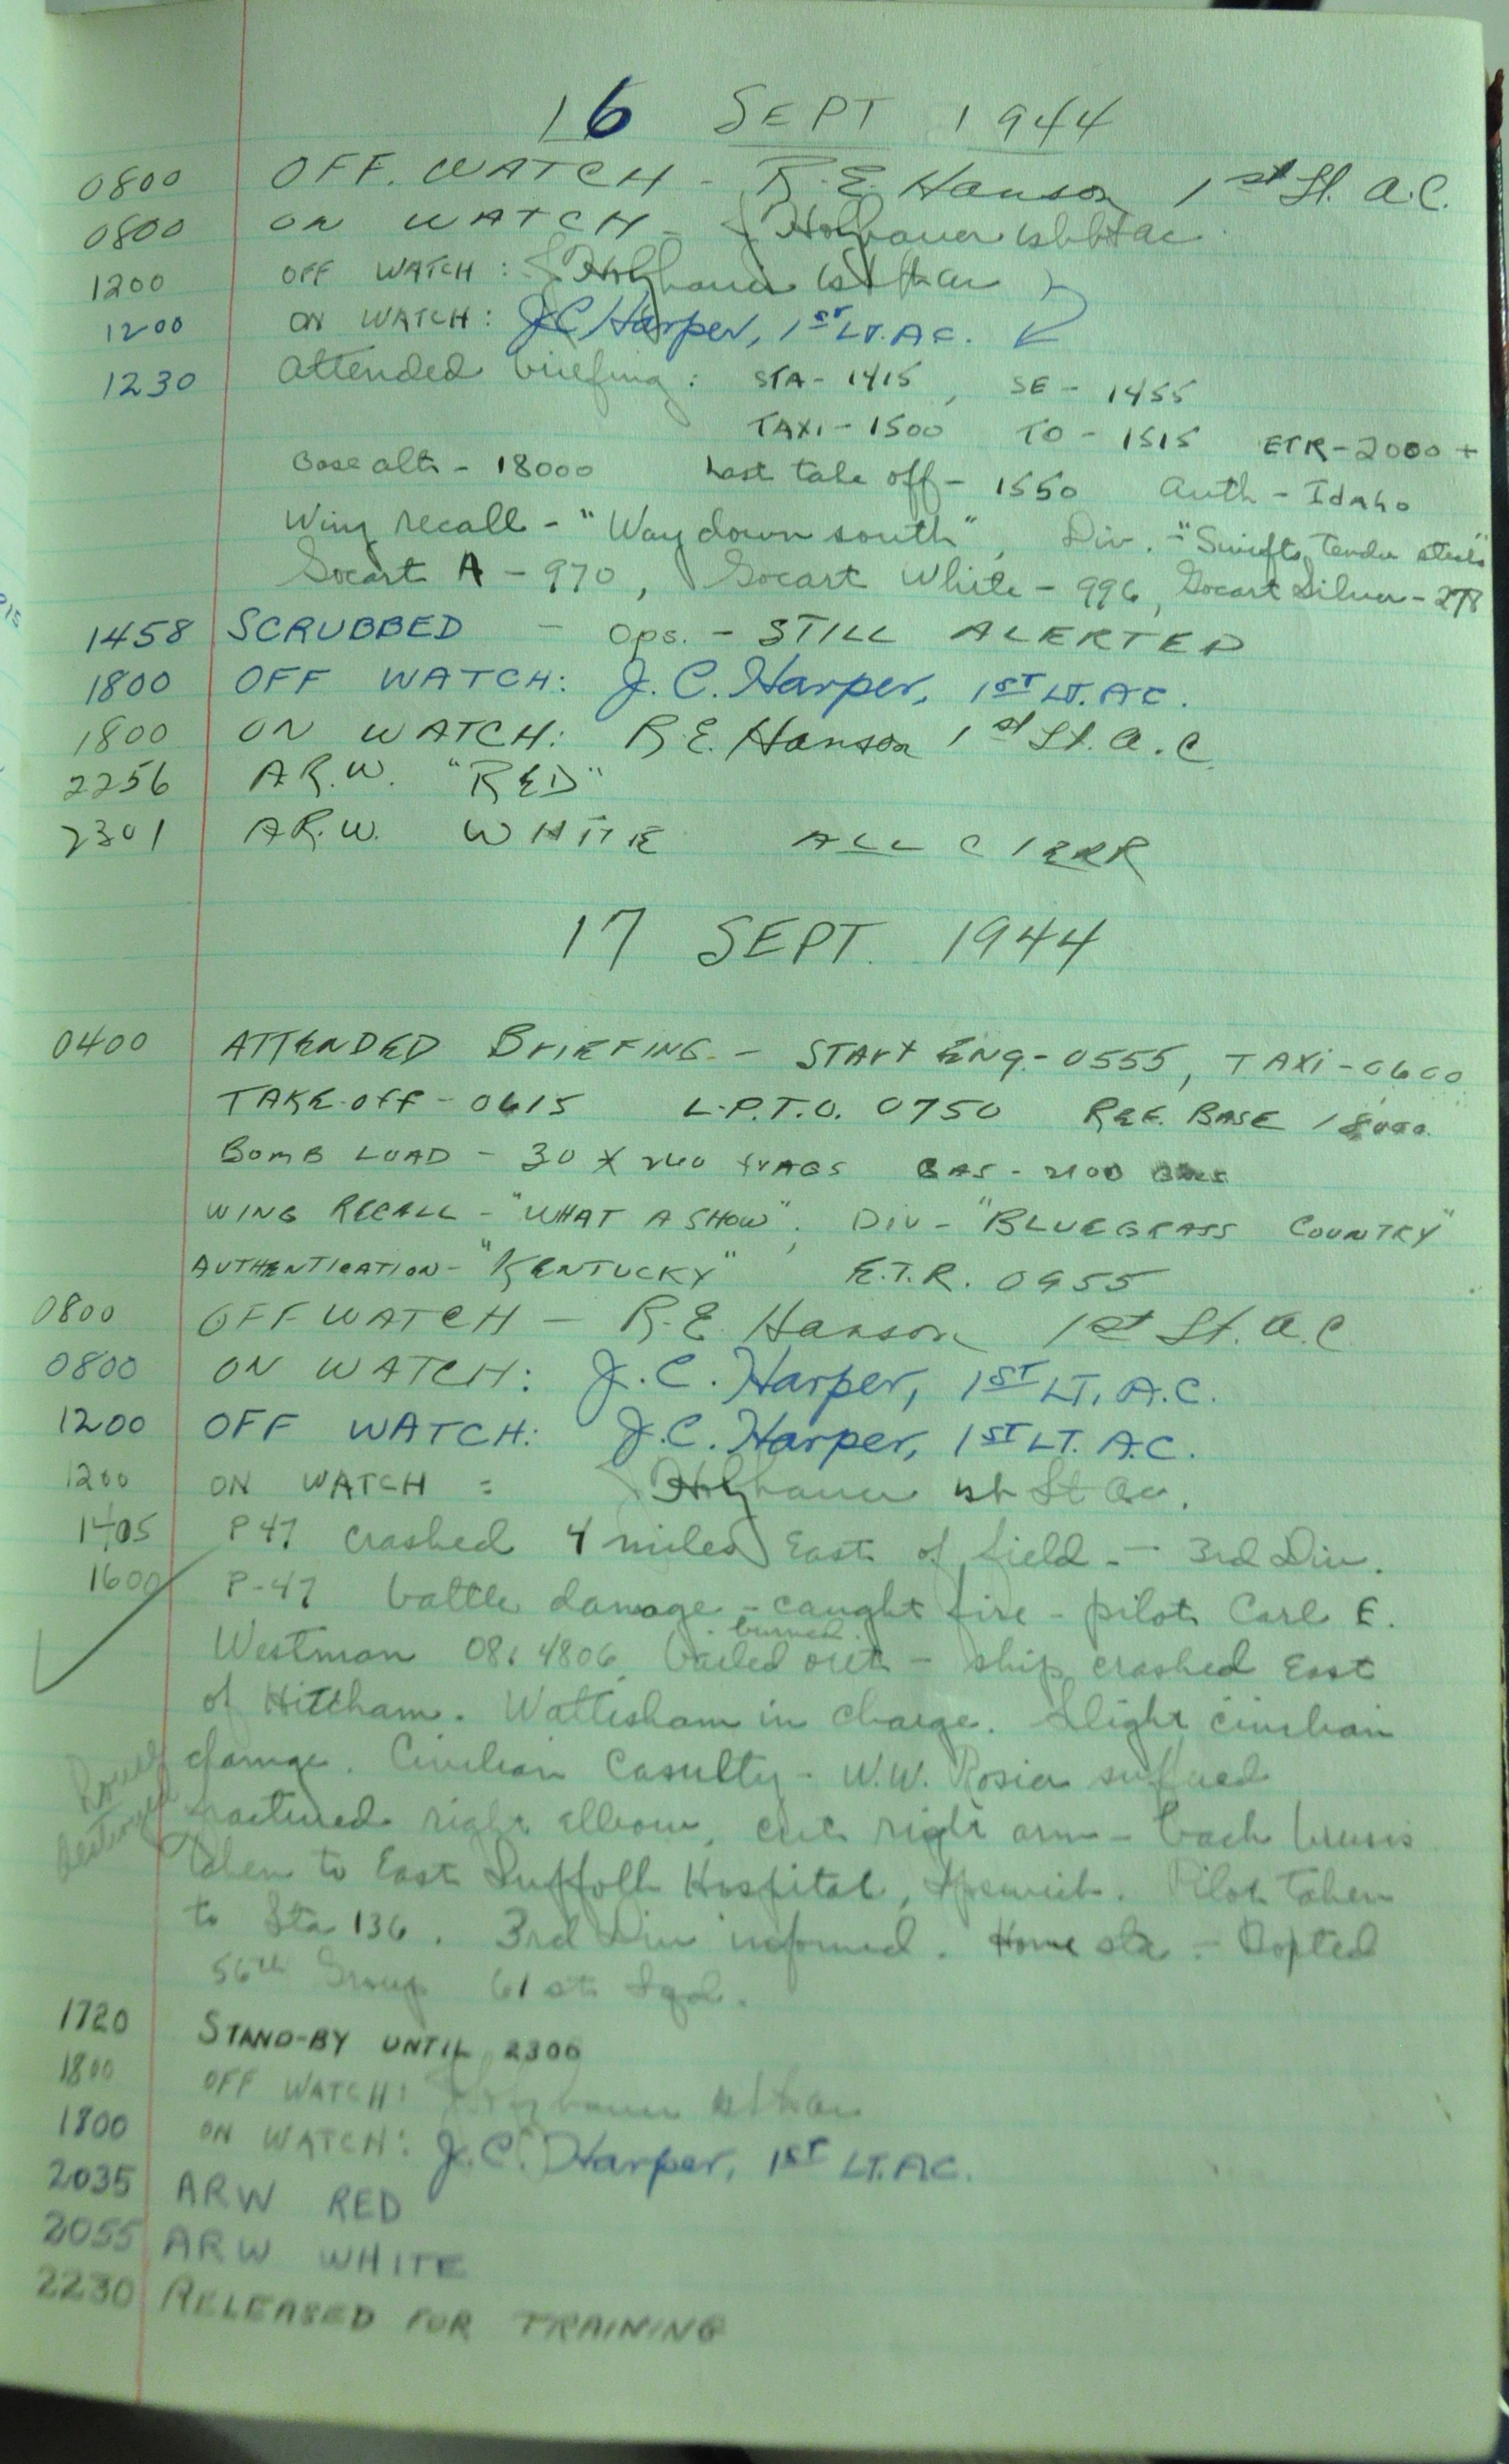 16 SEPT 1944
0800 OFF. WATCH - R.E. Hanson 1st Lt. A.C.
0800 ON WATCH -
1200 OFF WATCH :
1200 ON WATCH: J C Harper, 1ST LT. A C.
1230 Attended briefing : STA - 1415 , SE - 1455
TAXI - 1500 TO - 1515 ETR - 2000 +
Base alt - 18000 Last take off - 1550 Auth - Idaho
Wing recall - "Way down south" , Div. - "Swifts Tender steak"
Gocart A - 970 , Gocart White - 996 , Gocart Silver - 278
1458 SCRUBBED - Ops. - STILL ALERTED
1800 OFF WATCH: J. C. Harper, 1ST LT. A C.
1800 ON WATCH: R.E. Hanson 1st Lt. A. C.
2256 A.R.W. "RED"
2301 A.R.W. WHITE ALL CLEAR
17 SEPT. 1944
0400 ATTENDED BRIEFING - START ENG. - 0555, TAXI - 0600
TAKE-OFF - 0615 L.P.T.O. 0750 REF. BASE 18000
BOMB LOAD - 30 X 260 FRAGS GAS - 2100 GALS
WING RECALL - "WHAT A SHOW", DIV - "BLUEGRASS COUNTRY"
AUTHENTICATION - "KENTUCKY" E.T.R. 0955
0800 OFF WATCH - R.E. Hanson 1st Lt. A.C
0800 ON WATCH: J. C. Harper, 1ST LT. A.C.
1200 OFF WATCH: J. C. Harper, 1ST LT. A.C.
1200 ON WATCH :
1405 P 47 crashed 4 miles East of field - 3rd Div.
1600 P-47 battle damage - caught fire - pilot Carl E.
burned
Westman bailed out - ship crashed East
of Hittham. Wattisham in charge. Slight civilian
House destroyed
damage. Civilian Casulty - W.W. Rosier suffered
fractured right elbow, cut right arm - back bruis
Taken to East Suffolk Hospital, Ipswich. Pilot taken
to Sta 136 . 3rd Div informed. Home sta - Boxted
56th Group 61st Sqd.
1720 STAND-BY UNTIL 2300
1800 OFF WATCH:
1800 ON WATCH: J. C. Harper, 1ST LT. A.C.
2035 ARW RED
2055 ARW WHITE
2230 RELEASED FOR TRAINING